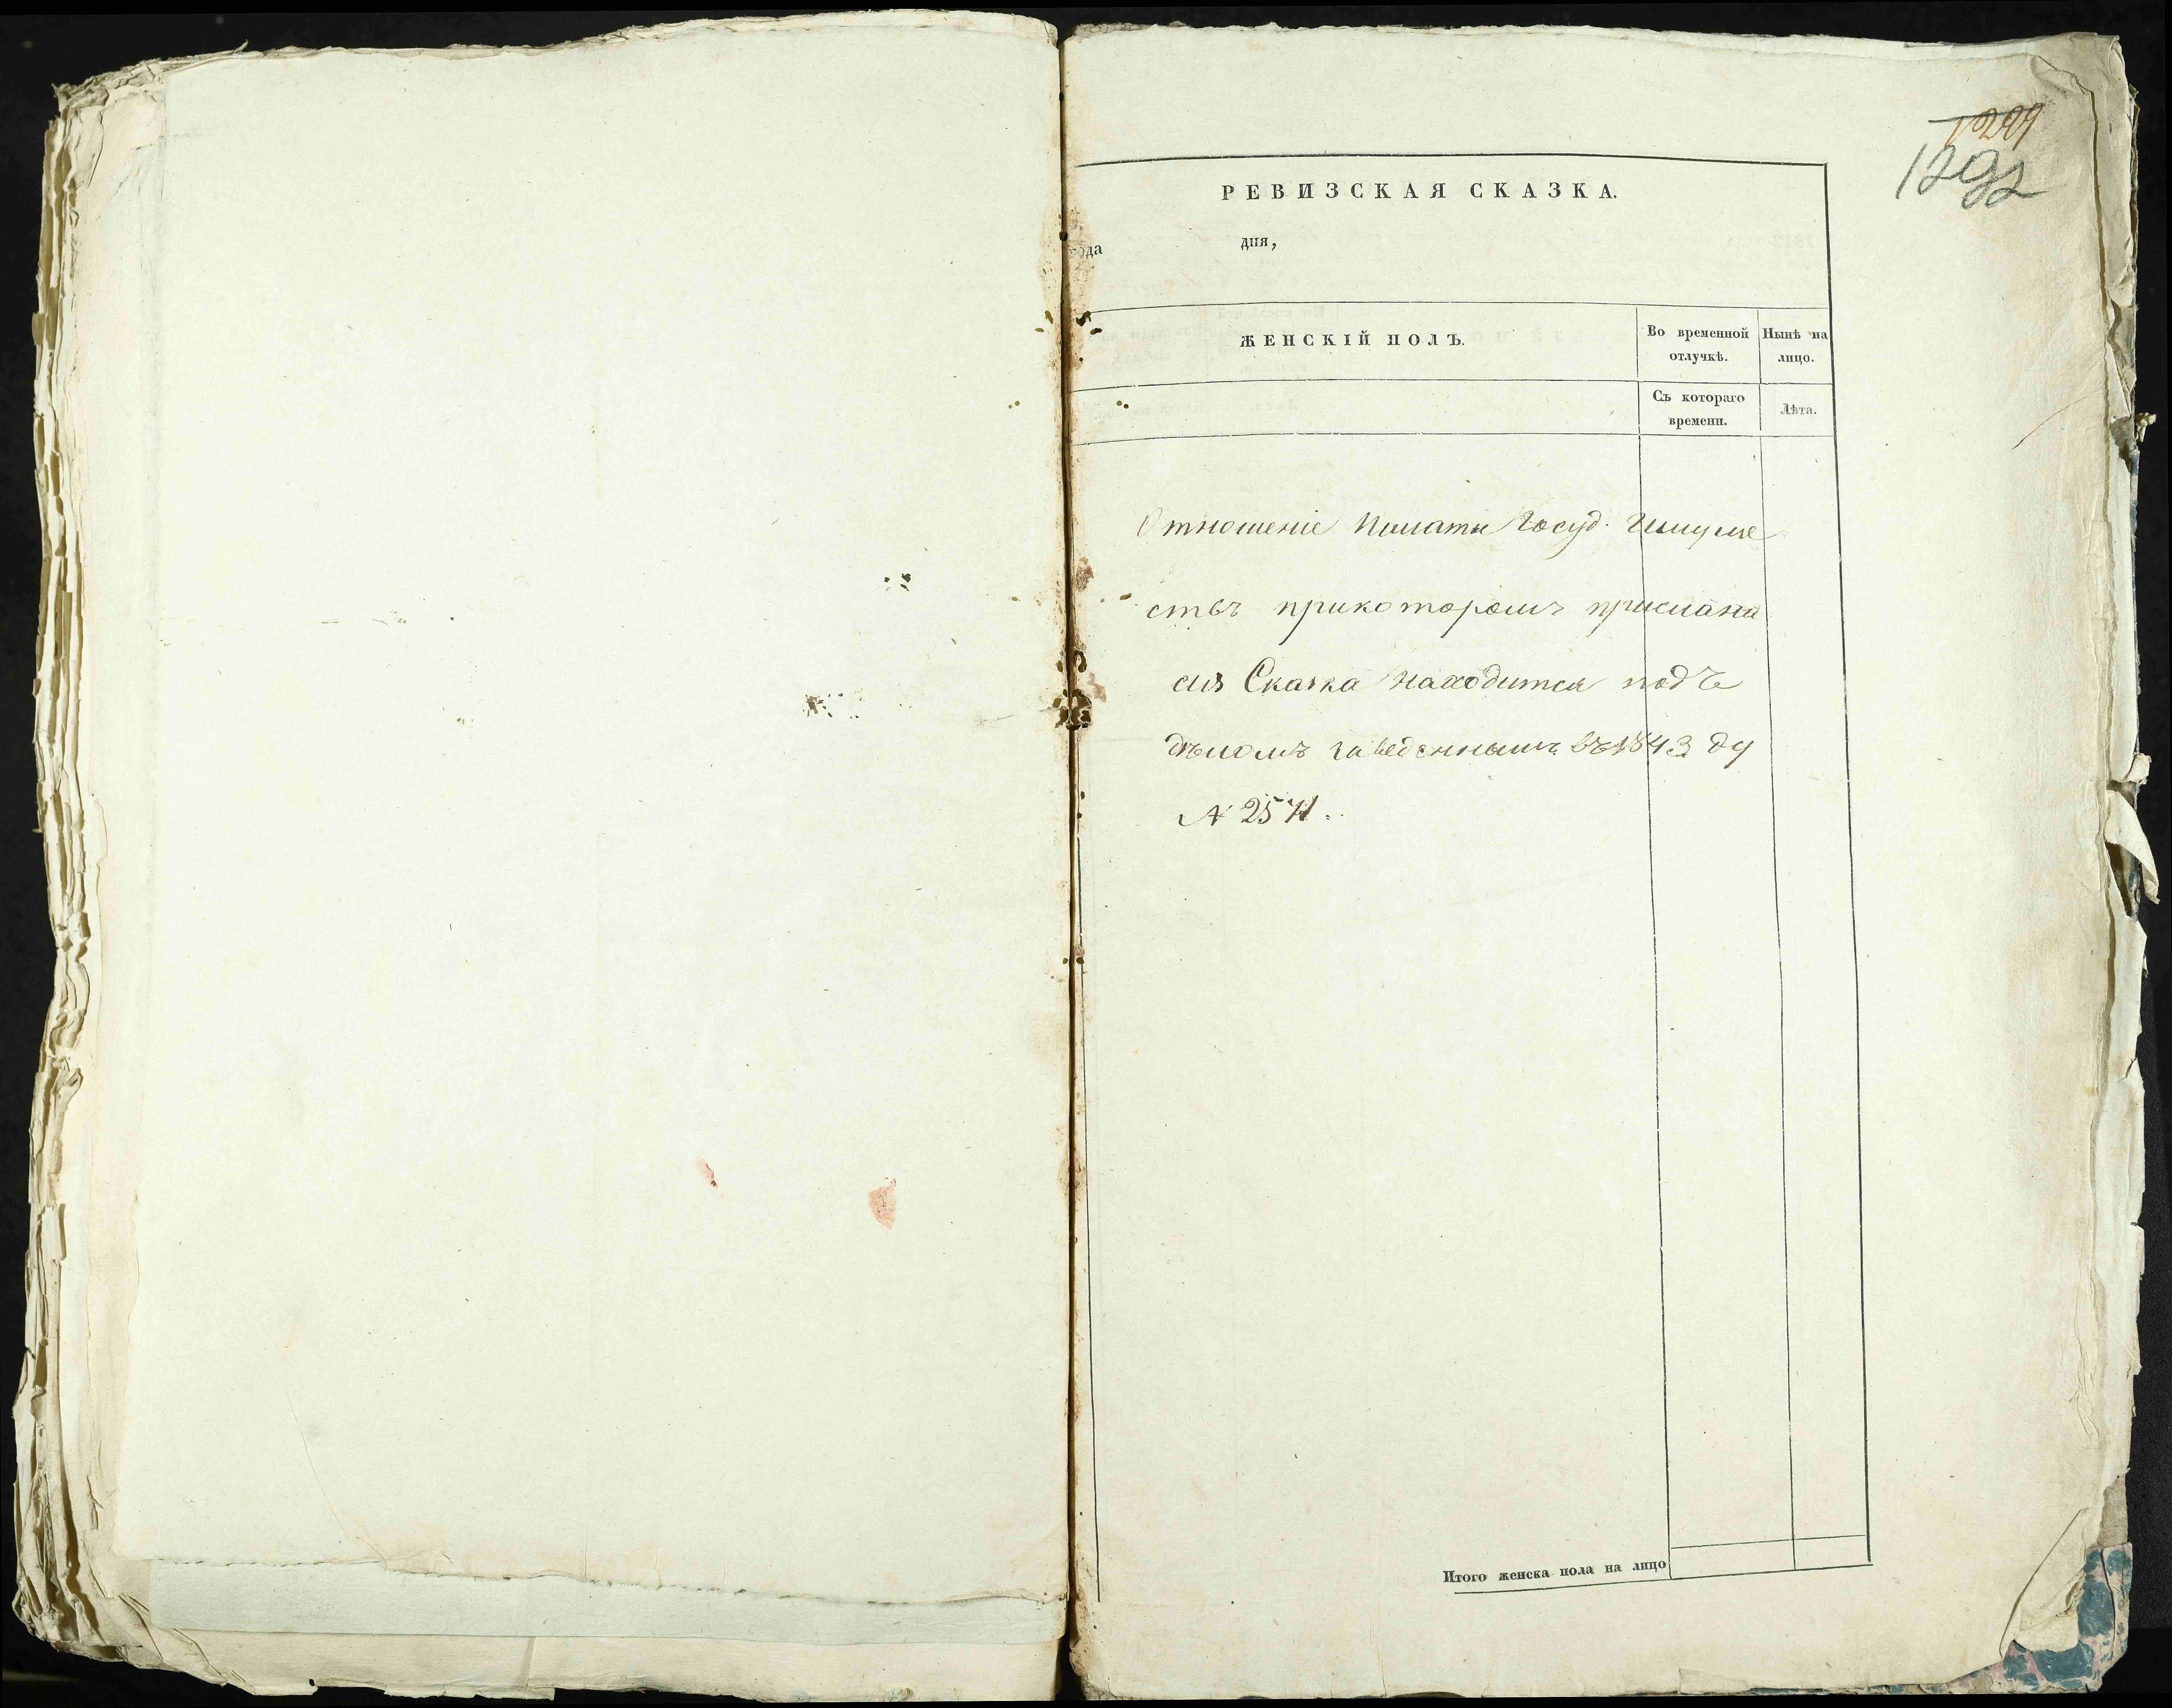 1299
1292
РЕВИЗСКАЯ СКАЗКА.
года дня,
ЖЕНСКІЙ ПОЛЪ.
Во временной отлучкѣ.
Нынѣ на лицо.
Съ котораго времени.
Лѣта.
Отношеніе Палаты Госуд. Имуще
ствъ прикоторомъ прислана
сія Сказка находится подъ
дѣломъ заведеннымъ въ 1843 ду
№ 2571.
Итого женска пола на лицо